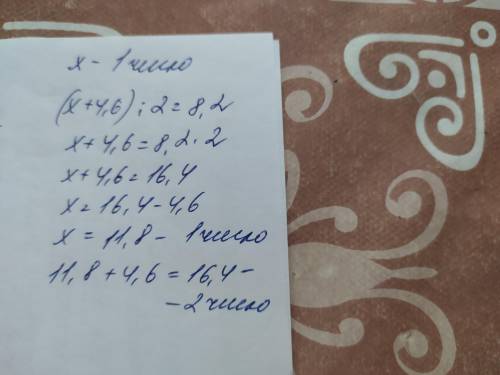 х - 1 число
(х+4,6) : 2 = 8,2
х+4,6 = 8,2 · 2
х+4,6 = 16,4
х = 16,4 - 4,6
х = 11,8 - 1 число
11,8 + 4,6 = 16,4 -
- 2 число